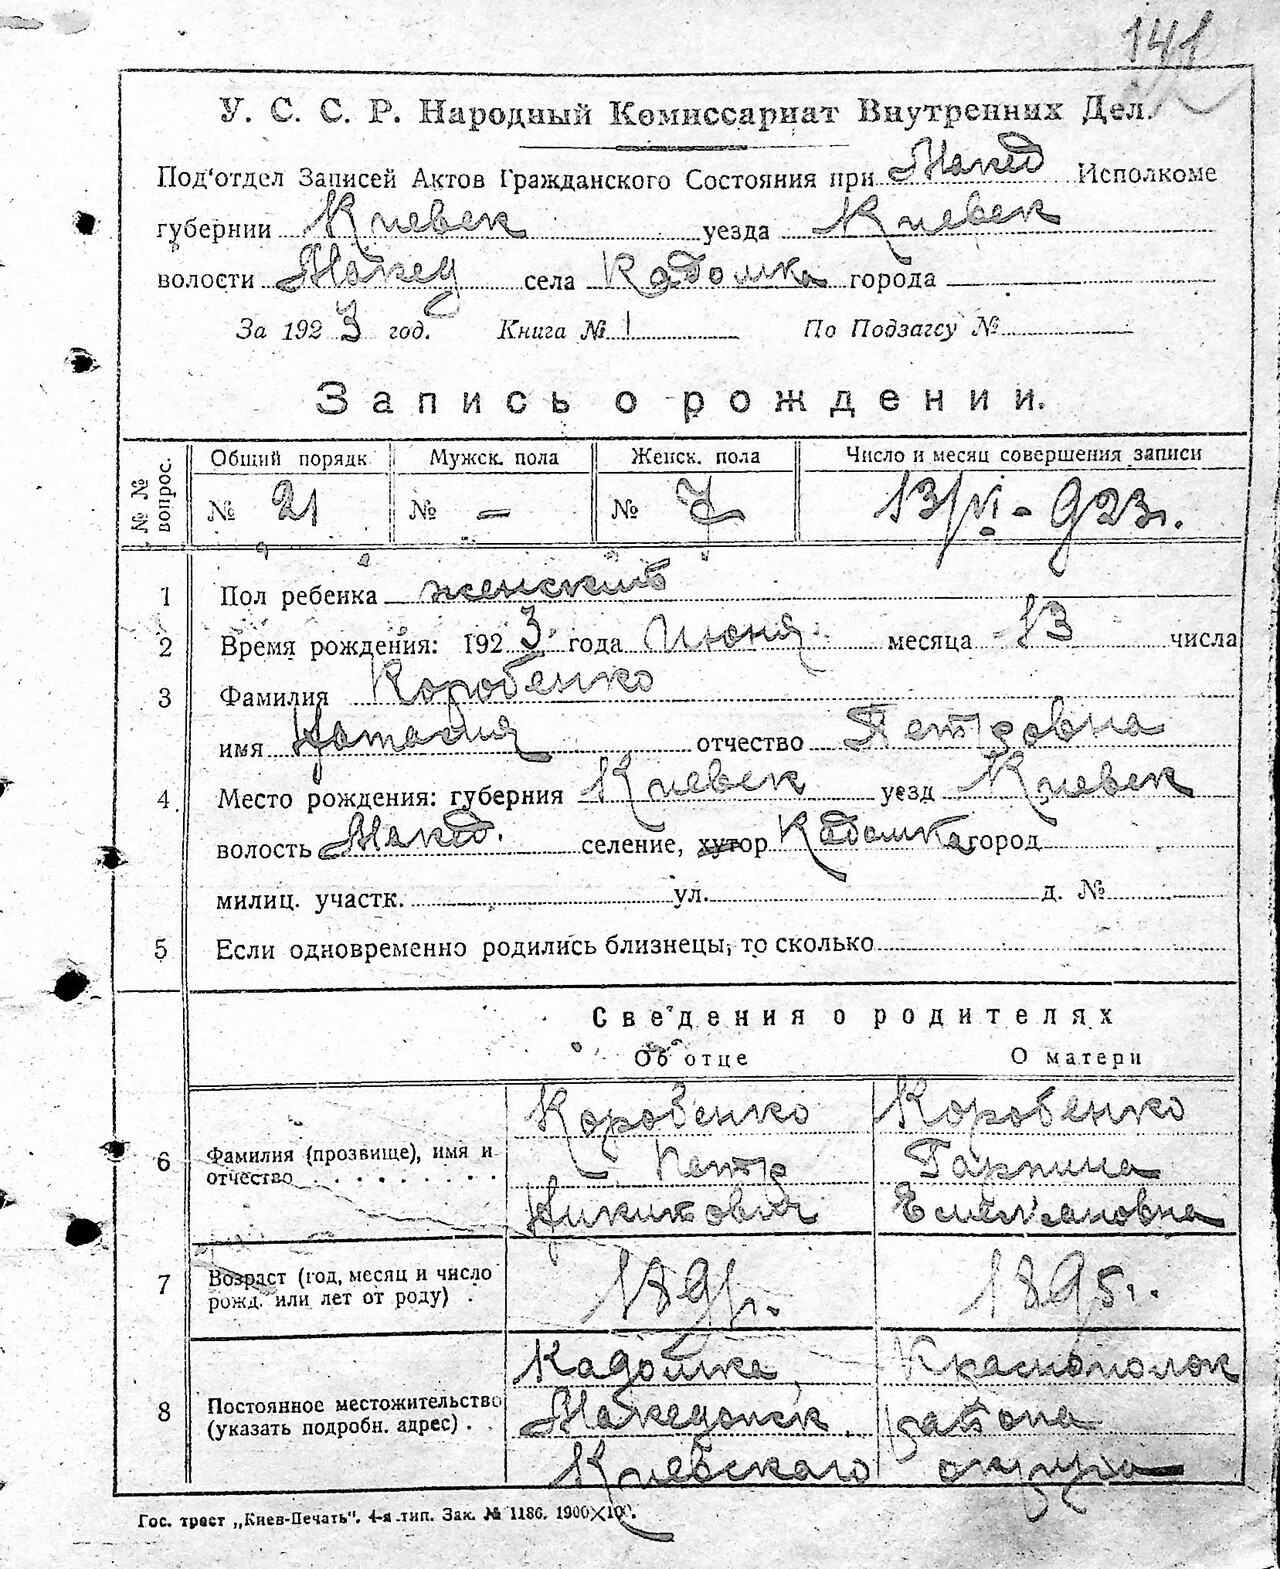 141
У. С. С. Р. Народный Комиссариат Внутренних Дел.
Под'отдел Записей Актов Гражданского Состояния при Макед Исполкоме
губернии Киевск уезда Киевск
волости Макед села Кадомка города
За 1923 год. Книга № 1 По Подзагсу №
Запись о рождении.
№№ вопрос. Общий порядк Мужск. пола Женск. пола Число и месяц совершения записи
№ 21 № — № 7 13/VI - 923 г.
1 Пол ребенка женский
2 Время рождения: 1923 года Июня месяца 13 числа
3 Фамилия Коробенко
имя Наталия отчество Петровна
4 Место рождения: губерния Киевск уезд Киевск
волость Макед. селение, хутор Кадомка город
милиц. участк. ул. д. №
5 Если одновременно родились близнецы, то сколько
Сведения о родителях
Об отце О матери
Коробенко Коробенко
6 Фамилия (прозвище), имя и отчество Петр Гарпина
Никитович Емельяновна
7 Возраст (год, месяц и число рожд. или лет от роду) . 1891 г. 1895 г.
Кадомка, Краснополок
8 Постоянное местожительство (указать подробн. адрес) . . Македонск района
Киевскаго округа
Гос. трест „Киев-Печать". 4-я тип. Зак. № 1186. 1900×100.